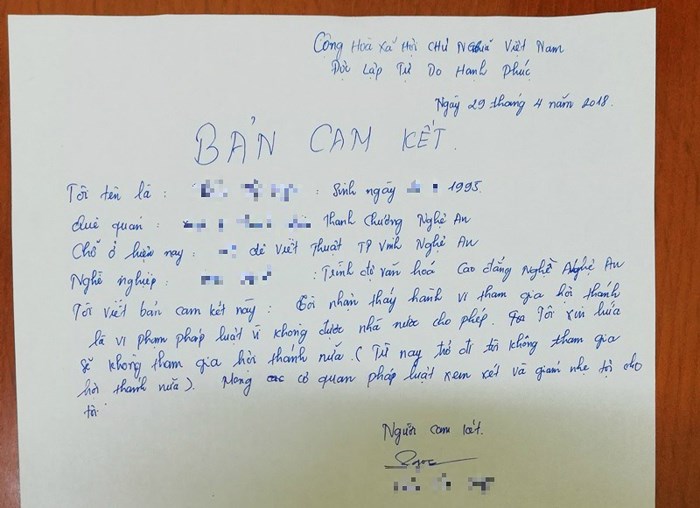 Cộng Hoà Xã Hội CHỦ Nghĩa Việt Nam
Độc Lập Tự Do Hạnh Phúc
Ngày 29 tháng 4 năm 2018.
BẢN CAM KẾT.
Tôi tên là : : Sinh ngày 1995
Quê quán : Thanh Chương Nghệ An
Chổ ở hiện nay : đê Viết Thuật TP Vinh Nghệ An
Nghề nghiệp : : Trình độ văn hoá Cao đẳng Nghề Nghệ An
Tôi viết bản cam kết này : Tôi nhận thấy hành vi tham gia hội thánh
là vi phạm pháp luật vì không được nhà nước cho phép. Tôi xin hứa
sẽ không tham gia hội thánh nữa. (Từ nay trở đi tôi không tham gia
hội thánh nữa). Mong cơ quan pháp luật xem xét và giảm nhẹ tội cho
tôi.
Người cam kết.